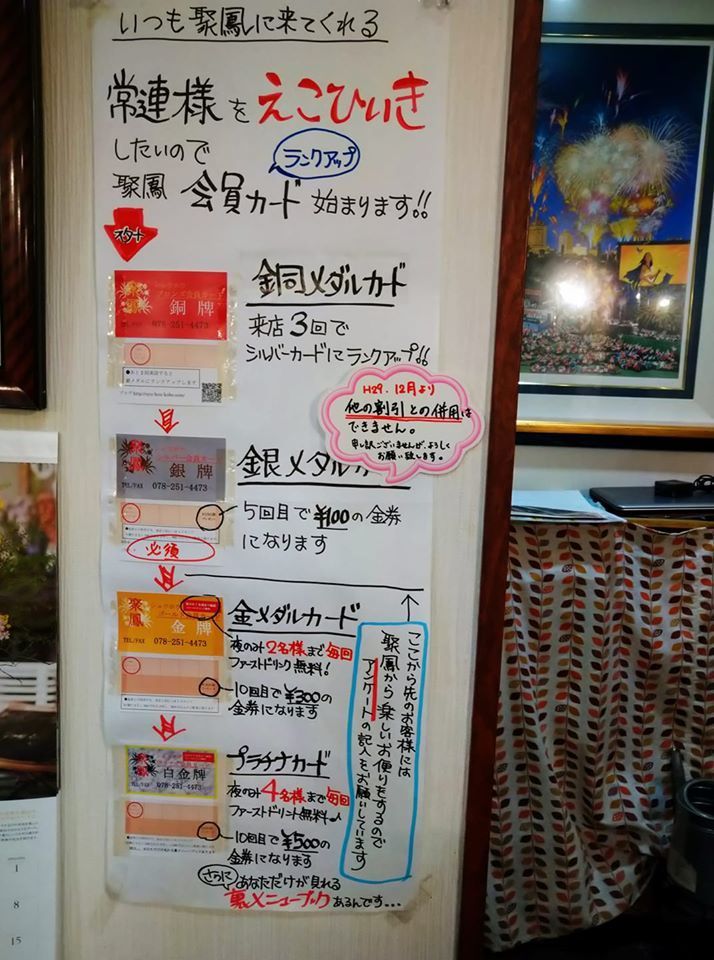 いつも聚鳳に来てくれる
常連様をえこひいき
したいので
ランクアップ
聚鳳 会員カード 始まります!!
スタート
銅牌
TEL/FAX 078-251-4473
銅メダルカード
来店3回で
シルバーカードにランクアップ!!
H29.12月より
他の割引との併用は
できません。
申し訳ございませんが、よろしく
お願い致します。
聚鳳
銀牌
TEL/FAX 078-251-4473
必須
銀メダルカ
5回目で¥100の金券
になります
聚鳳
金牌
TEL/FAX 078-251-4473
金メダルカード
夜のみ2名様まで毎回
ファーストドリンク無料!
10回目で¥300の
金券になります
白金牌
078-251-4473
プラチナカード
夜のみ4名様まで毎回
ファーストドリンク無料♪
10回目で¥500の
金券になります
さらに
あなただけが見れる
裏メニューブックあるんです…
ここから先のお客様には
聚鳳から楽しいお便りをするので
アンケートの記入をお願いしています
1
8
15